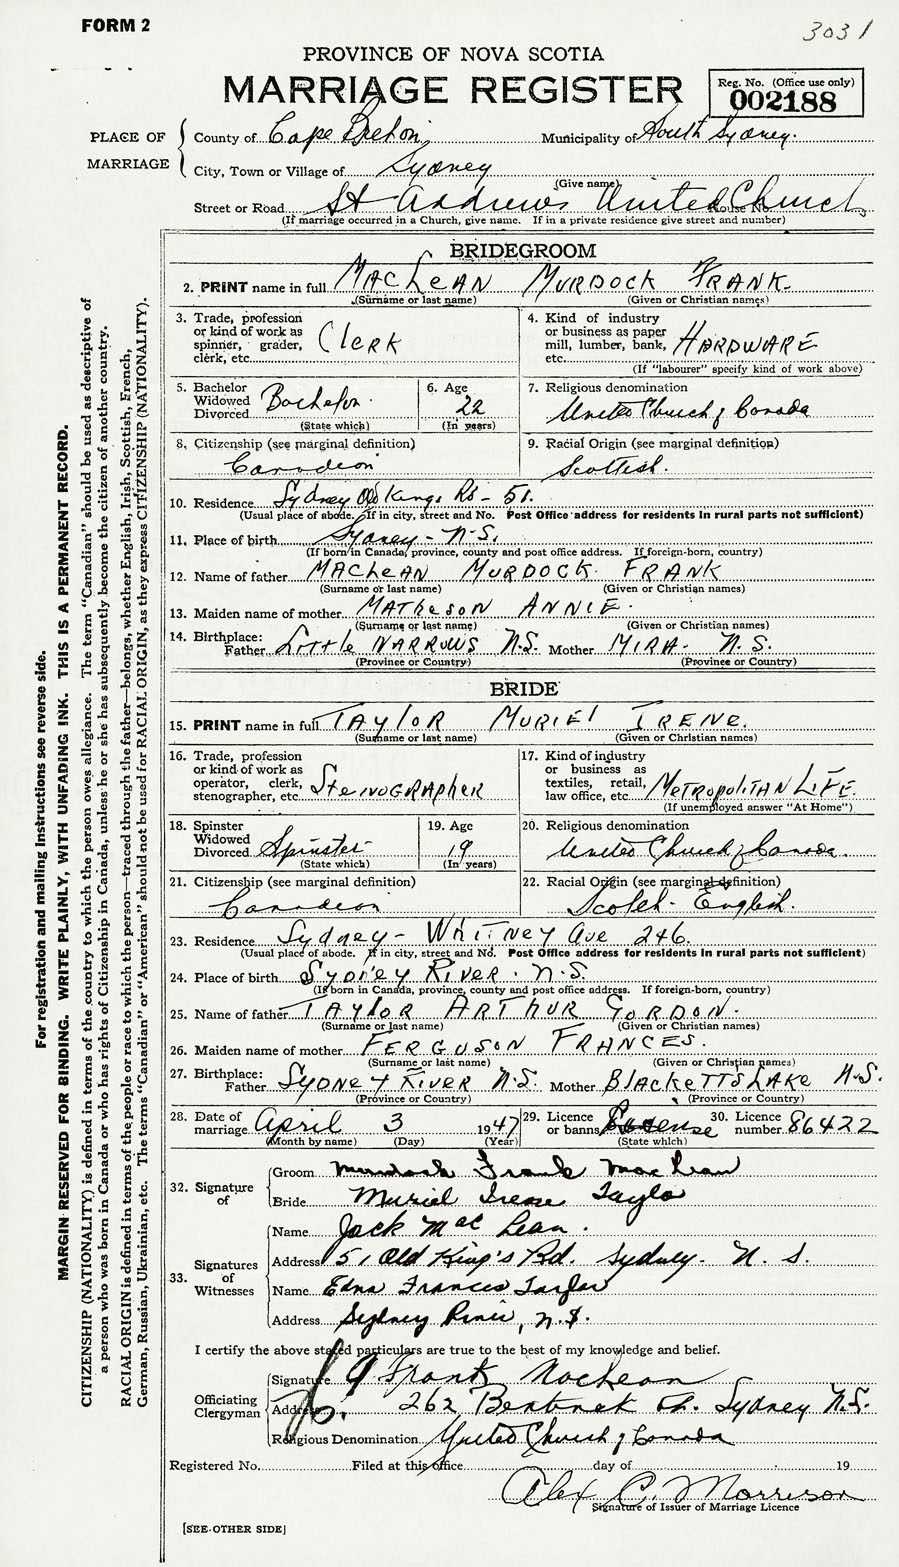 FORM 2
3031
PROVINCE OF NOVA SCOTIA
MARRIAGE REGISTER
Reg. No. (Office use only)
002188
PLACE OF MARRIAGE
County of Cape Breton Municipality of South Sydney.
City, Town or Village of Sydney
(Give name)
Street or Road St Andrews United Church House No.
(If marriage occurred in a Church, give name. If in a private residence give street and number)
BRIDEGROOM
2. PRINT name in full MacLean Murdock Frank
(Surname or last name) (Given or Christian names)
3. Trade, profession or kind of work as spinner, grader, clerk, etc. Clerk
4. Kind of industry or business as paper mill, lumber, bank, etc. Hardware
(If "labourer" specify kind of work above)
5. Bachelor Widowed Divorced Bachelor.
(State which)
6. Age 22
(In years)
7. Religious denomination United Church of Canada
8. Citizenship (see marginal definition) Canadian
9. Racial Origin (see marginal definition) Scottish.
10. Residence Sydney Old Kings Rd - 51.
(Usual place of abode. If in city, street and No. Post Office address for residents in rural parts not sufficient)
11. Place of birth Sydney - N.S.
(If born in Canada, province, county and post office address. If foreign-born, country)
12. Name of father MacLean Murdock Frank
(Surname or last name) (Given or Christian names)
13. Maiden name of mother Matheson Annie.
(Surname or last name) (Given or Christian names)
14. Birthplace: Father Little Narrows N.S. Mother Mira. N.S.
(Province or Country) (Province or Country)
BRIDE
15. PRINT name in full Taylor Muriel Irene.
(Surname or last name) (Given or Christian names)
16. Trade, profession or kind of work as operator, clerk, stenographer, etc. Stenographer
17. Kind of industry or business as textiles, retail, law office, etc. Metropolitan Life.
(If unemployed answer "At Home")
18. Spinster Widowed Divorced Spinster
(State which)
19. Age 19
(In years)
20. Religious denomination United Church of Canada.
21. Citizenship (see marginal definition) Canadian
22. Racial Origin (see marginal definition) Scotch - English.
23. Residence Sydney - Whitney Ave 246.
(Usual place of abode. If in city, street and No. Post Office address for residents in rural parts not sufficient)
24. Place of birth Sydney River. N.S.
(If born in Canada, province, county and post office address. If foreign-born, country)
25. Name of father Taylor Arthur Gordon.
(Surname or last name) (Given or Christian names)
26. Maiden name of mother Ferguson Frances.
(Surname or last name) (Given or Christian names)
27. Birthplace: Father Sydney River N.S. Mother Blacketts Lake N.S.
(Province or Country) (Province or Country)
28. Date of marriage April 3 1947
(Month by name) (Day) (Year)
29. Licence or banns License
(State which)
30. Licence number 86422
32. Signature of
Groom Murdock Frank MacLean
Bride Muriel Irene Taylor
33. Signatures of Witnesses
Name Jack MacLean.
Address 51 Old King's Rd. Sydney. N. S.
Name Edna Frances Taylor
Address Sydney River, N.S.
I certify the above stated particulars are true to the best of my knowledge and belief.
Officiating Clergyman
Signature Frank MacLean
Address 262 Bentinck St. Sydney N.S.
Religious Denomination United Church of Canada
Registered No. Filed at this office day of 19
Alex C. Morrison
Signature of Issuer of Marriage Licence
[SEE OTHER SIDE]
For registration and mailing instructions see reverse side.
MARGIN RESERVED FOR BINDING. WRITE PLAINLY, WITH UNFADING INK. THIS IS A PERMANENT RECORD.
CITIZENSHIP (NATIONALITY) is defined in terms of the country to which the person owes allegiance. The term "Canadian" should be used as descriptive of
a person who was born in Canada or who has rights of Citizenship in Canada, unless he or she has subsequently become the citizen of another country.
RACIAL ORIGIN is defined in terms of the people or race to which the person—traced through the father—belongs, whether English, Irish, Scottish, French,
German, Russian, Ukrainian, etc. The terms "Canadian" or "American" should not be used for RACIAL ORIGIN, as they express CITIZENSHIP (NATIONALITY).